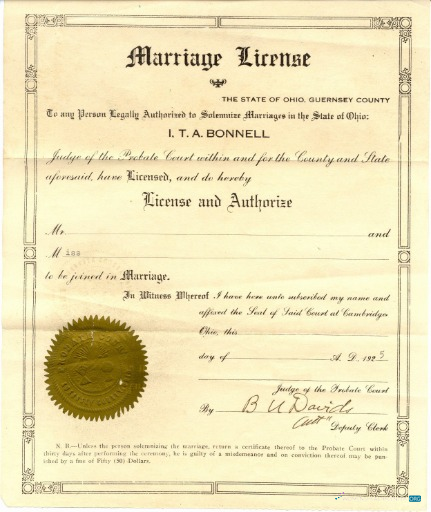 Marriage License
THE STATE OF OHIO, GUERNSEY COUNTY
To any Person Legally Authorized to Solemnize Marriages in the State of Ohio:
I. T. A. BONNELL
Judge of the Probate Court within and for the County and State
aforesaid, have Licensed, and do hereby
License and Authorize
Mr. and
Miss
to be joined in Marriage.
In Witness Whereof I have here unto subscribed my name and
affixed the Seal of Said Court at Cambridge
Ohio, this
day of A. D. 1923
Judge of the Probate Court
By B U Davids
Deputy Clerk
N. B.—Unless the person solemnizing the marriage, return a certificate thereof to the Probate Court within
thirty days after performing the ceremony, he is guilty of a misdemeanor and on conviction thereof may be pun-
ished by a fine of Fifty (50) Dollars.
ORG